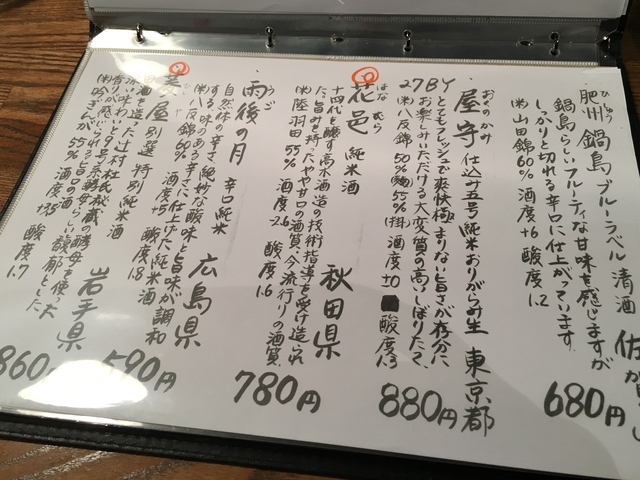 肥州 鍋島 ブルーラベル 清酒 佐賀
鍋島らしいフルーティな甘味を感じますが
しっかりと切れる辛口に仕上がっています。
㈱山田錦60% 酒度+6 酸度1.2
680円
おくのかみ
屋守 仕込み五号 純米おりがらみ生 東京都
27BY
とてもフレッシュで爽快極まりない旨さが存分に
お楽しみいただける大変質の高いしぼりたて。
㈱八反錦50%(麹)55%(掛) 酒度±0 酸度1.3
880円
はなむら
花邑 純米酒 秋田県
十四代を醸す高木酒造の技術指導を受け造られ
た旨みを持ったやや甘口の酒質、今流行りの酒質。
㈱陸羽田55% 酒度-2.6 酸度1.6
780円
うご
雨後の月 辛口純米 広島県
自然体の辛さ、絶妙な酸味と旨味が調和
する味のある辛さに仕上げた純米酒
㈱八反錦60% 酒度+5 酸度1.8
590円
屋 別選 特別純米酒 岩手県
酸度1.7
860円